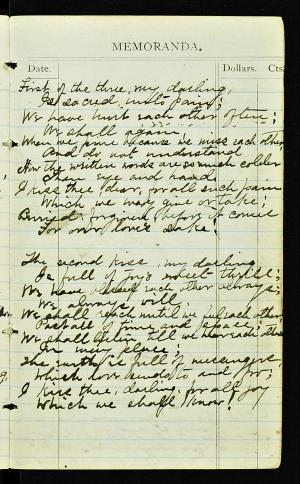 MEMORANDA.
Date. Dollars. Cts
First of the three, my darling,
Is sacred unto pain;
We have hurt each other often;
We shall again,
When we pine because we miss each other,
And do not understand
How the written words are so much colder
Than eye and hand.
I kiss thee, dear, for all such pain
Which we may give or take;
Buried, forgiven, before it comes
For our love's sake!
The second kiss, my darling,
Is full of joy's sweet thrill;
We have blessed each other always;
We always will.
We shall reach until we feel each other,
Past all of time and space;
We shall listen till we hear each other
In every place;
The earth is full of messengers,
Which love sends to and fro;
I kiss thee, darling, for all joy
Which we shall know!